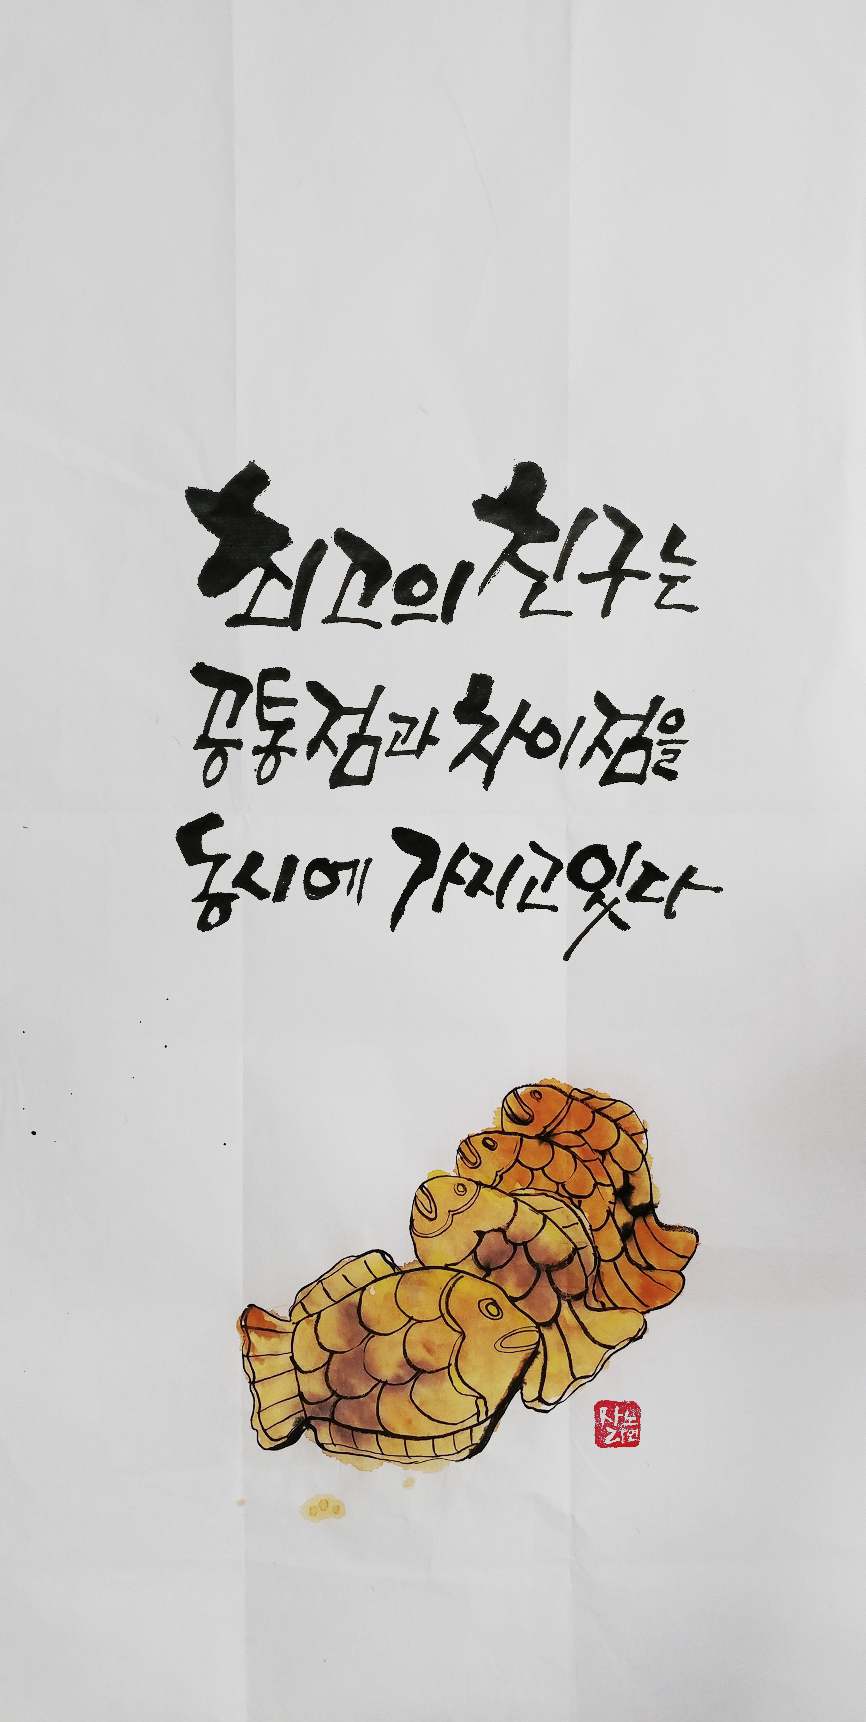 최고의 친구는
공통점과 차이점을
동시에 가지고 있다